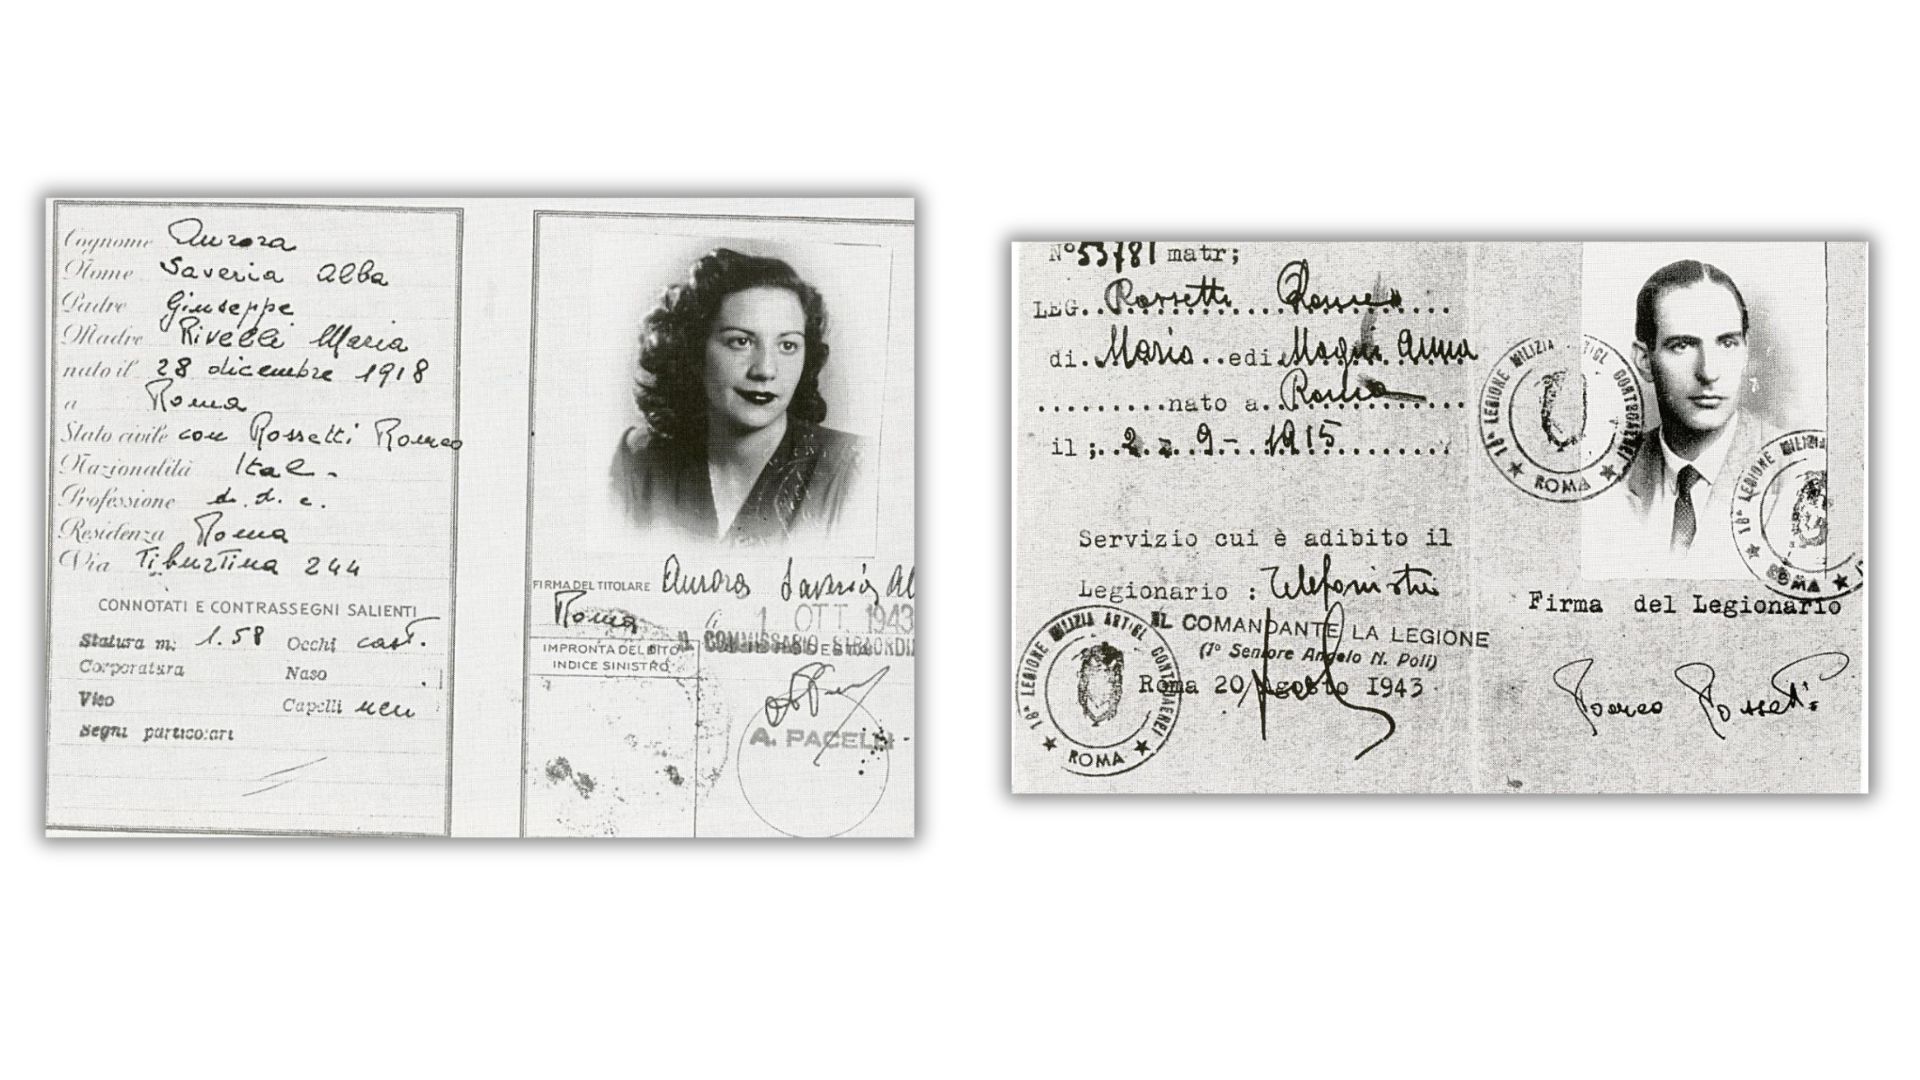 Cognome Aurora
Nome Saveria Alba
Padre Giuseppe
Madre Rivelli Maria
nato il 28 dicembre 1918
a Roma
Stato civile con Rossetti Romeo
Nazionalità Ital -
Professione d. d. c.
Residenza Roma
Via Tiburtina 244
CONNOTATI E CONTRASSEGNI SALIENTI
Statura m: 1.58 Occhi cast.
Corporatura Naso
Viso Capelli neri
Segni particolari
FIRMA DEL TITOLARE Aurora Saveria Al
Roma 1 OTT 1943
IL COMMISSARIO STRAORDI
IMPRONTA DEL DITO
INDICE SINISTRO
A. PACELLI
N° 53781 matr;
LEG. Rossetti Romeo
di Mario edi Anna
nato a Roma
il ; 2 - 9 - 1915
Servizio cui è adibito il
Legionario : Telefonista
IL COMANDANTE LA LEGIONE
(1° Seniore Angelo N. Poli)
Roma 20 Agosto 1943
18ª LEGIONE MILIZIA ARTIGL CONTROAEREI
ROMA
18ª LEGIONE MILIZIA ARTIGL CONTROAEREI
ROMA
18ª LEGIONE MILIZIA
ROMA
Firma del Legionario
Romeo Rossetti